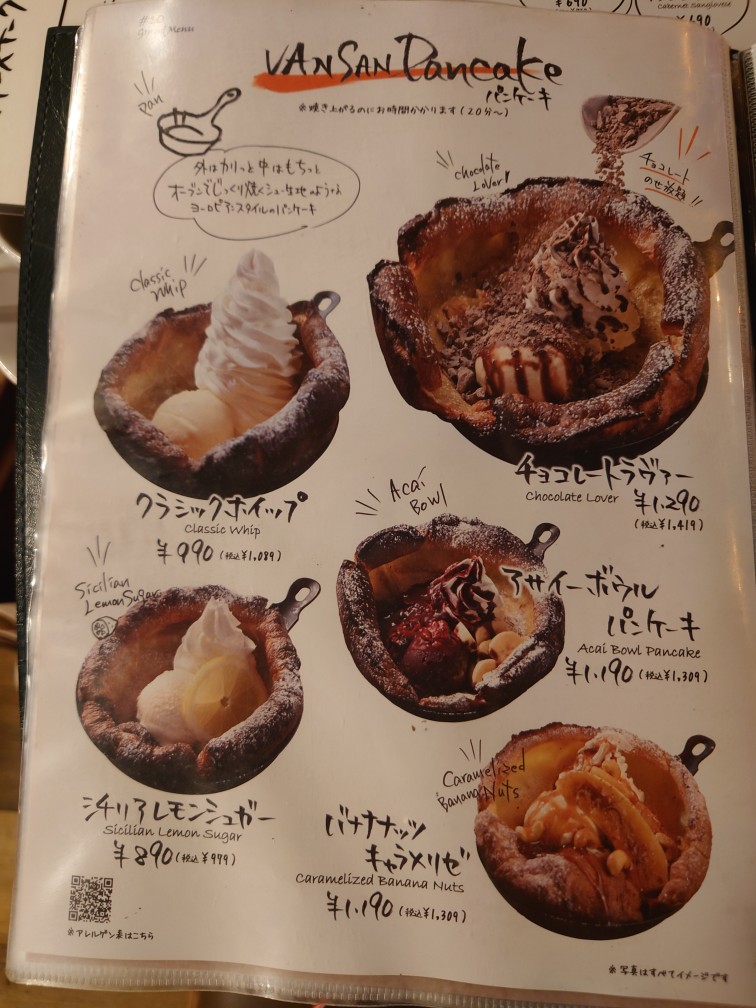 ¥690
Cabernet Sauvignon
¥690
Grand Menu
VANSAN Pancake
パンケーキ
※焼き上がるのにお時間かかります(20分〜)
pan
外はカリっと中はもちっと
オーブンでじっくり焼くシュー生地のような
ヨーロピアンスタイルのパンケーキ
chocolate
Lover!
チョコレート
のせ放題!!
classic
whip
クラシックホイップ
Classic Whip
¥990(税込¥1,089)
チョコレートラヴァー
Chocolate Lover ¥1,290
(税込¥1,419)
Acaí
Bowl
アサイーボウル
パンケーキ
Acai Bowl Pancake
¥1,190(税込¥1,309)
Sicilian
Lemon Sugar
シチリアレモンシュガー
Sicilian Lemon Sugar
¥890(税込¥979)
Caramelized
Banana Nuts
バナナナッツ
キャラメリゼ
Caramelized Banana Nuts
¥1,190(税込¥1,309)
※アレルゲン表はこちら
※写真はすべてイメージです